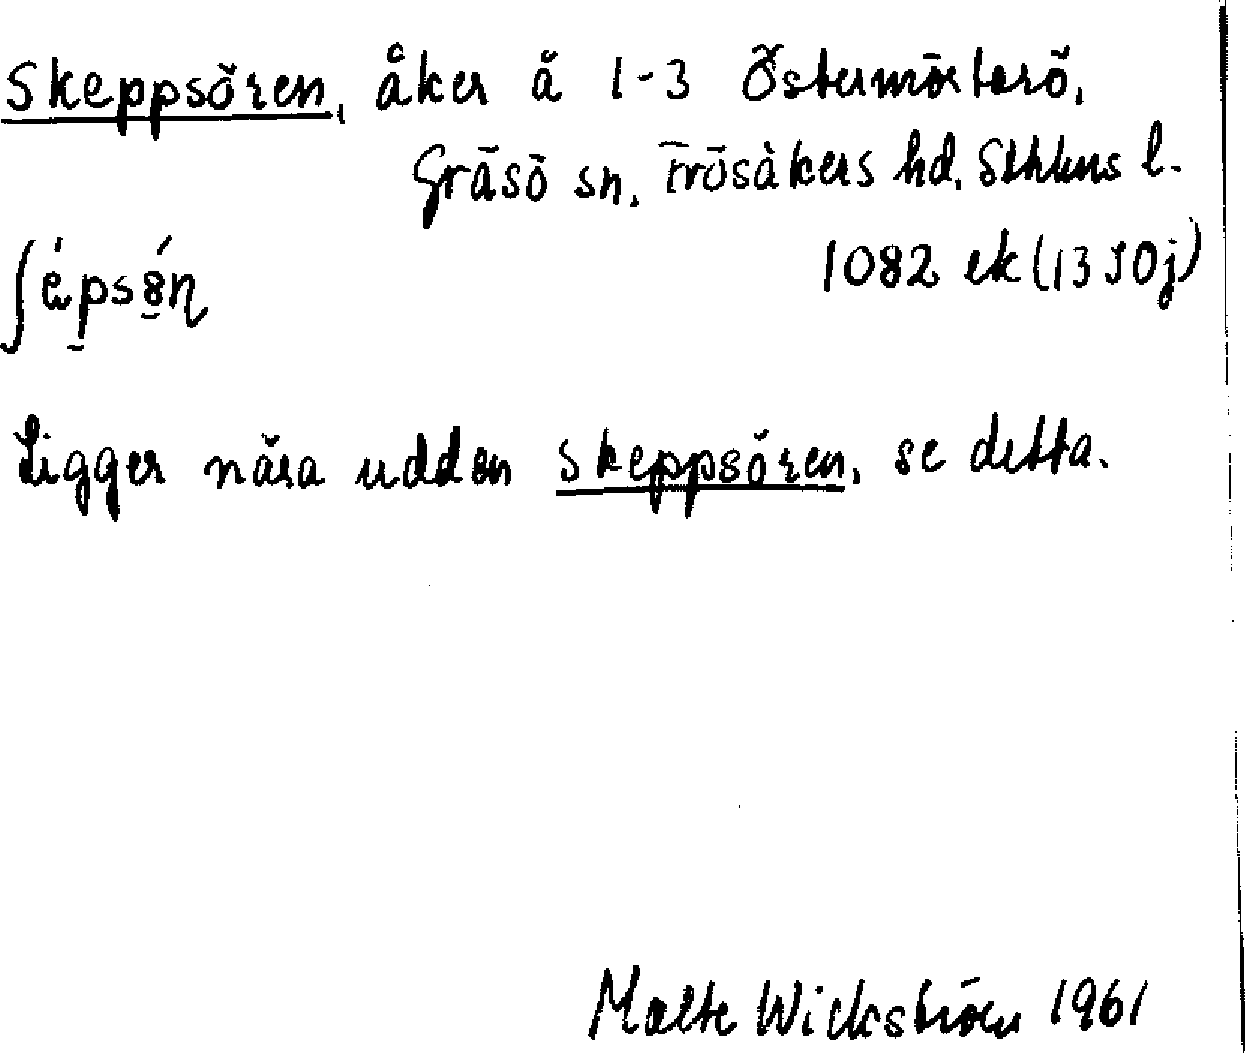 Skeppsören, åker å 1-3 Östermörtarö,
Gräsö sn, Frösåkers hd, Sthlms l.
1082 ek (13 I 0j)
Ligger nära udden Skeppsören, se detta.
Malte Wickström 1961